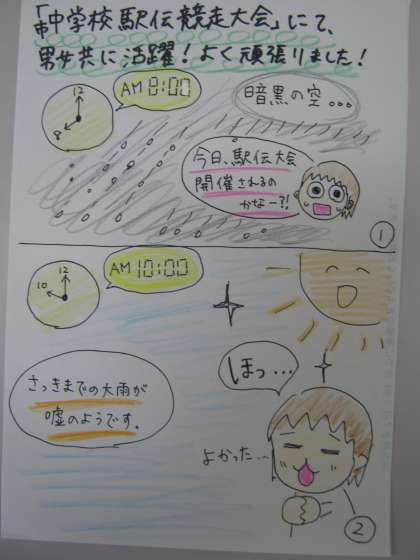 「市中学校駅伝競走大会」にて、
男女共に活躍！よく頑張りました！
12
8
AM 8:00
暗黒の空...
今日、駅伝大会
開催されるの
かなー?!
1
12
10
AM 10:00
ほっ...
さっきまでの大雨が
嘘のようです。
よかった...
2